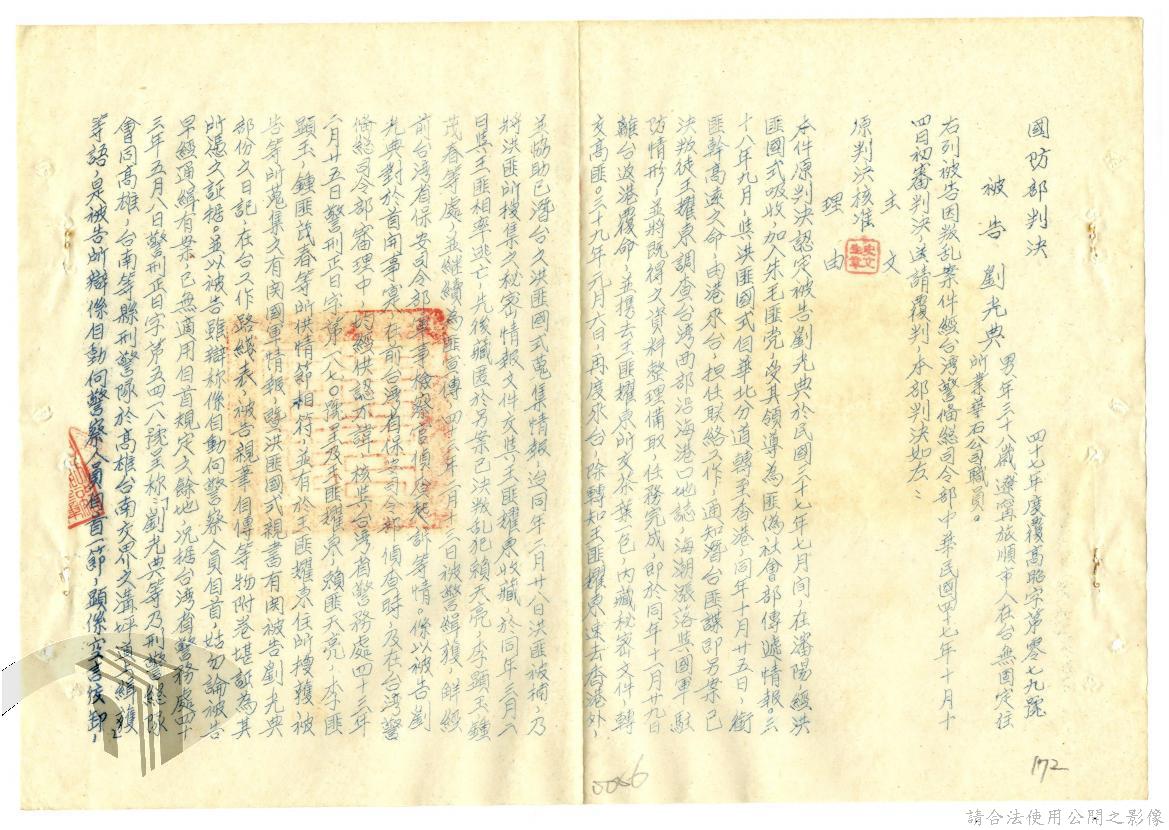 國防部判決
四十七年度覆高昭字第零七九號
被告 劉光典 男年三十八歲遼寧旅順市人在台無固定住
所業華石公司職員。
右列被告因叛乱案件經台灣警備總司令部中華民國四十七年十月十
四日初審判決,送請覆判,本部判決如左:
主文
原判決核准。
理由
本件原判決認定被告劉光典於民國三十七年七月間,在瀋陽經洪
匪國式吸收,加入朱毛匪党,受其領導為匪偽社會部傳遞情報。三
十八年九月,與洪匪國式自華北分道轉至香港,同年十月廿五日,銜
匪幹高遠之命,由港來台,担任联絡工作,通知潛台匪諜即另案已
決叛徒王耀東調查台湾西部沿海港口地誌,海潮漲落與國軍駐
防情形,並將既得之資料整理備取,任務完成,即於同年十二月廿九日
離台返港覆命,並携去王匪耀東所交茶葉一包,內藏秘密文件,轉
交高匪。三十九年元月六日再度來台,除轉知王匪耀東速去香港外,
並協助已潛台之洪匪國式蒐集情報,迨同年二月廿八日洪匪被捕,乃
將洪匪所搜集之秘密情報文件交與王匪耀東收藏,於同年三月一
日與王匪相率逃亡,先後藏匿於另案已決叛乱犯賴天亮,李顯玉鍾
茂春等處,並継續為匪宣傳,四十三年二月三日被警緝獲,解經
前台湾省保安司令部軍事檢察官偵查起訴等情。係以被告劉
光典對於首開事實,在前台湾省保安司令部偵查時,及在台湾警
備總司令部審理中,均經供認不諱,核與台湾省警務處四十三年
二月廿五日警刑正日字第一八七〇號呈及王匪耀東,賴匪天亮,李匪
顯玉,鍾匪茂春等所供情節相符,並有於王匪耀東住所搜獲被
告等所蒐集之有関國軍情報,暨洪匪國式親書有関被告劉光典
部份之日記,在台工作路綫表,被告親筆自傳等物附卷堪証為其
所憑之証据。並以被告雖辯称係自動向警察人員自首,姑勿論被告
早經通緝有案已無適用自首規定之餘地,况据台湾省警務處四十
三年五月八日警刑正日字第五四一八號呈称:「劉光典等乃刑警総隊
會同高雄,台南等縣刑警隊於高雄台南交界之溝坪首緝獲」
等語,是被告所辯係自動向警察人員自首一節,顯係空言狡卸,
172
0066
請合法使用公開之影像